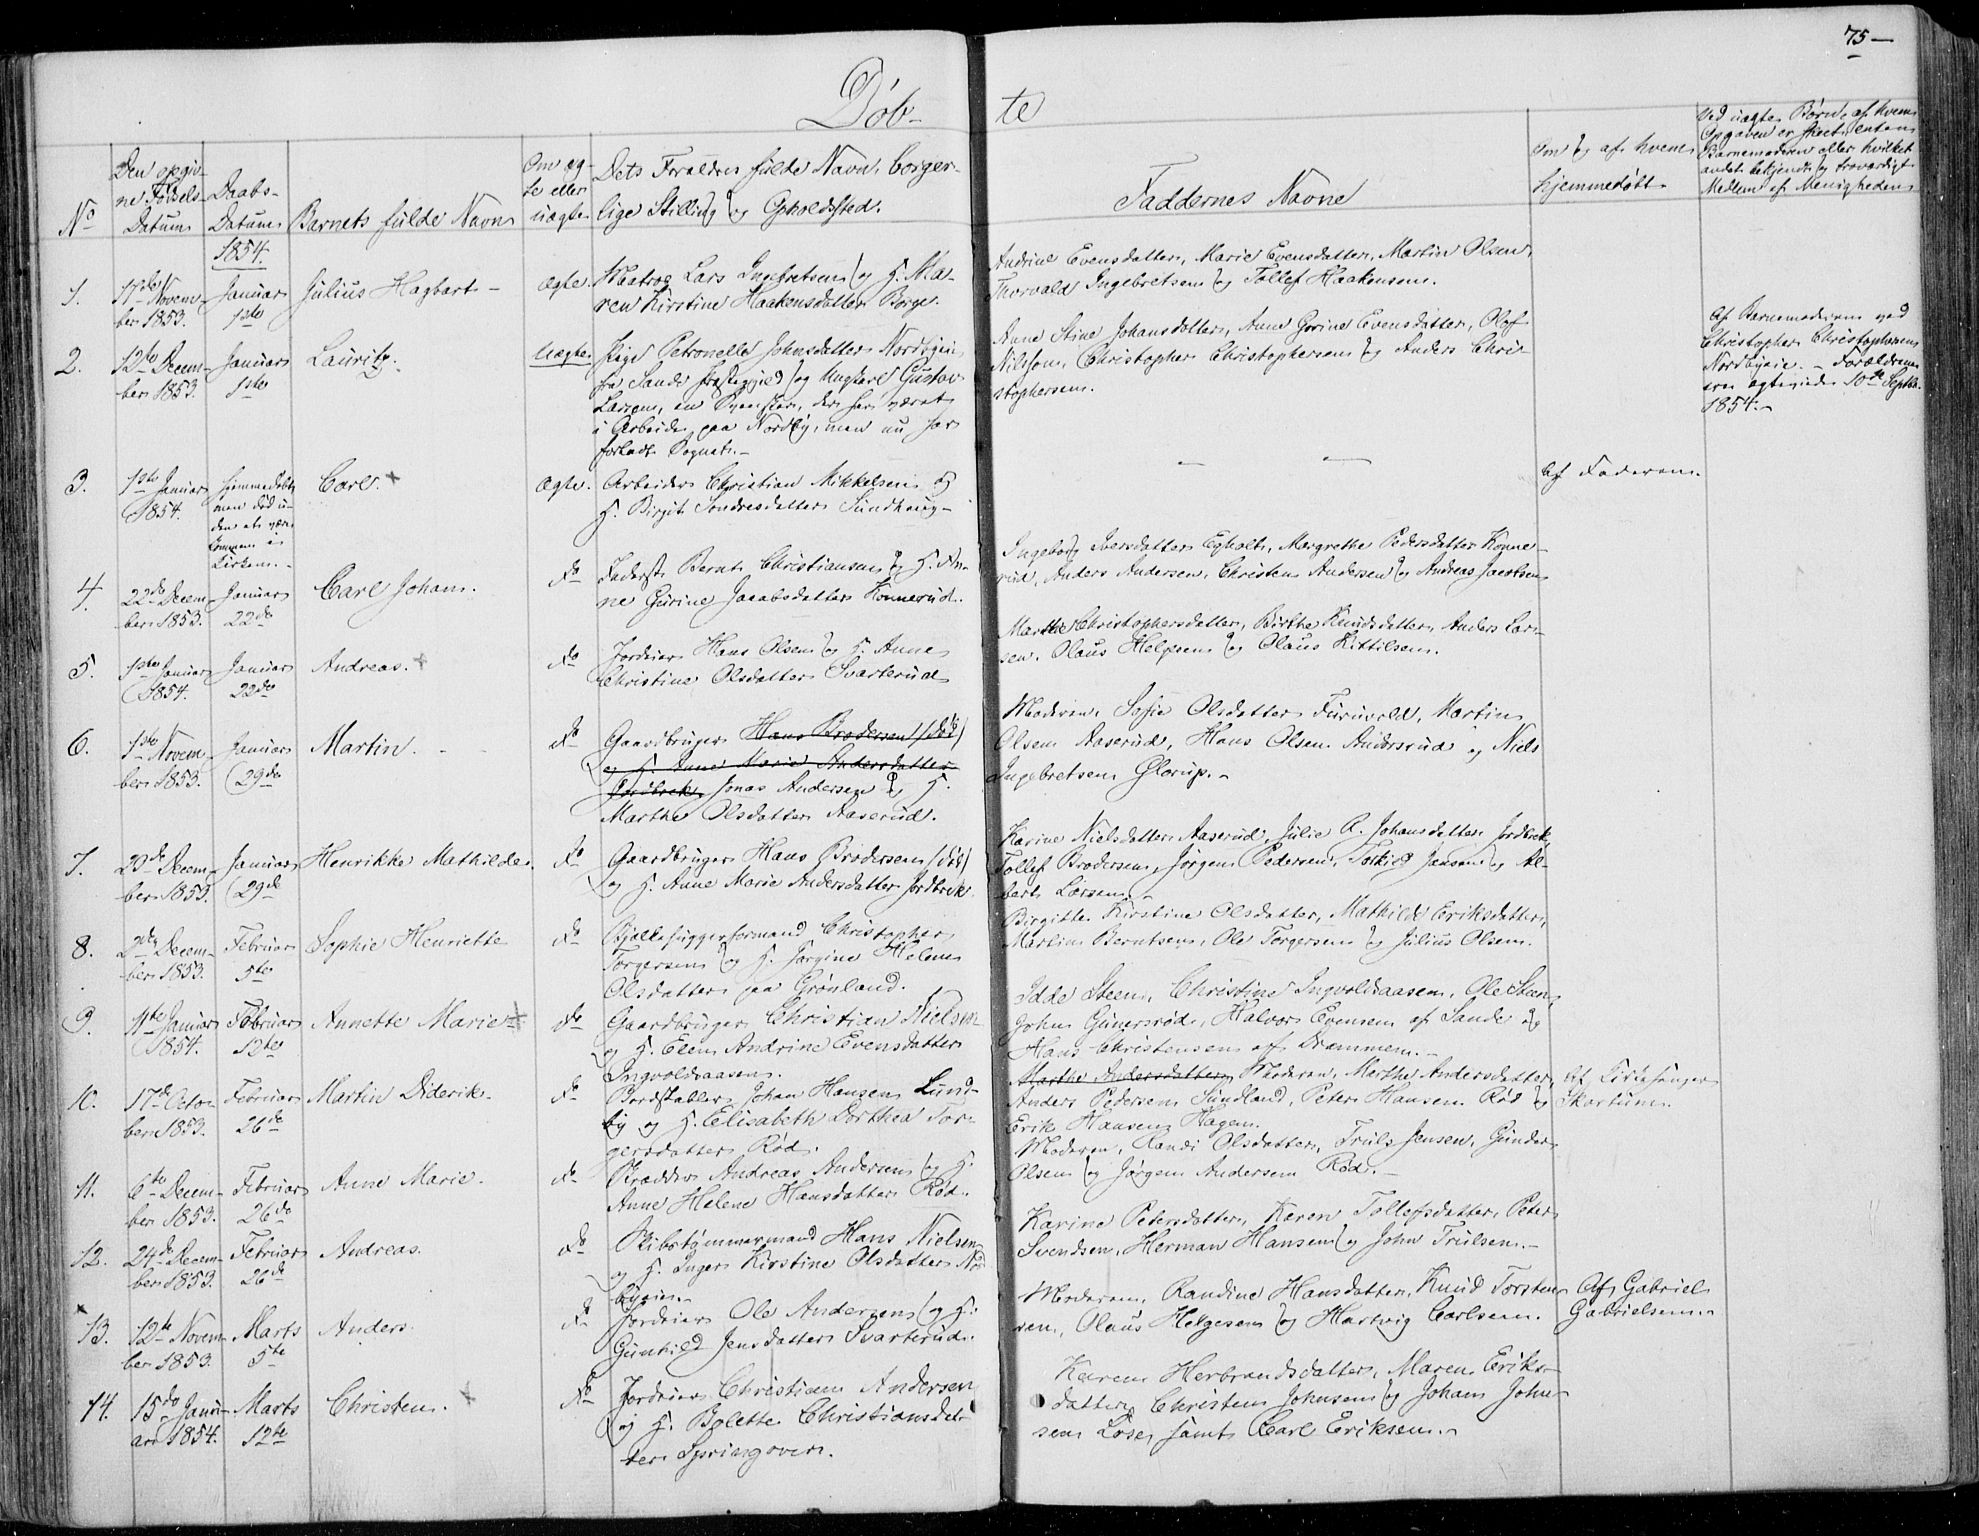 75 —
Døb-
te
No
Den opgiv-
ne Fødsels-
Datum
Daabs-
Datum
Barnets fulde Navn
Om æg-
te eller
uægte
Dets Forældres fulde Navn, borger-
lige Stilling og Opholdssted.
Faddernes Navne
Om og af hvem
hjemmedøbt
Ved uægte Børn, af hvem
Opgaven er skeet, enten
Barnemoderen eller hvilket
andet bekjendt og troværdigt
Medlem af Menigheden
1854.
1.
11te Novem-
ber 1853.
Januar
1ste
Julius Hagbart -
ægte.
Matros Lars Ingebretsen og H. Ma-
ren Kirstine Haakensdatter Borge.
Andrine Evensdatter, Marie Evensdatter, Martin Olsen,
Thorvald Ingebretsen og Tollef Haakensen.
2.
12te Decem-
ber 1853.
Januar
1ste
Lauritz.
Uægte
Pige Petronelle Johnsdatter Nordbyeie
fra Sande Præstegjeld og Ungkarl Gustav
Larsen, en Svensker, der har været
i Arbeide paa Nordby, men nu har
forladt Sognet. -
Anne Stine Johansdatter, Anne Gorine Evensdatter, Olof
Nilsson, Christopher Christophersen og Anders Chri-
stophersen.
Af Barnemoderen ved
Christopher Christophersen
Nordbyeie. - Forældrene
ere ægteviede 10de Septbr.
1854. -
3.
1ste Januar
1854.
hjemmedøbt
men død u-
den at være
kommen i
Kirken. -
Carl.
Ægte.
Arbeider Christian Mikkelsen og
H. Birgit Sondresdatter Sundhaug -
- -
Af Faderen.
4.
22de Decem-
ber 1853.
Januar
22de
Carl Johan.
Do
Inderst Bernt Christiansen og H. An-
ne Gurine Jacobsdatter Konnerud.
Ingeborg Iversdatter Egholt, Margrethe Pedersdatter Konne-
rud, Anders Andersen, Christen Andersen og Andreas Jacobsen
5.
1ste Januar
1854.
Januar
22de
Andreas.
Do
Jordeier Hans Olsen og H. Anne
Christine Olsdatter Svarterud
Marthe Christophersdatter, Birthe Knudsdatter, Anders Lar-
sen, Olaus Helgesen og Olaus Kittilsen.
6.
1ste Novem-
ber 1853.
Januar
29de
Martin.
Do
Gaardbruger Hans Brodersen (død)
og H. Anne Marie Andersdatter
Jordbrek, Jonas Andersen og H.
Marthe Olsdatter Aaserud.
Moderen, Sofie Olsdatter Furuvold, Martin
Olsen Aaserud, Hans Olsen Andersrud og Niels
Ingebretsen Glorup. -
7.
23de Decem-
ber 1853.
Januar
29de
Henrikke Mathilde.
Do
Gaardbruger Hans Brodersen (død)
og H. Anne Marie Andersdatter Jordbrek
Karine Nielsdatter Aaserud, Julie A. Johansdatter Jordbrek,
Tollef Brodersen, Jørgen Pedersen, Torkild Jansen og Al-
bert Larsen. -
8.
2den Decem-
ber 1853.
Februar
5te
Sophie Henriette
Do
Bjelkehuggerformand Christopher
Torgersen og H. Jørgine Helene
Olsdatter paa Grønland.
Birgitte Kirstine Olsdatter, Mathilde Eriksdatter,
Martin Berntsen, Ole Torgersen og Julius Olsen.
9.
11te Januar
1854.
Februar
12te
Annette Marie
Do
Gaardbruger Christian Nielsen
og H. Elen Andrine Evensdatter
Ingvoldsaasen.
Idde Steen, Christine Ingvoldsaasen, Ole Steen,
John Gunersrød, Halvor Evensen af Sande og
Hans Christensen af Drammen. -
10.
17de Octo-
ber 1853.
Februar
26de
Martin Diderik.
Do
Bordstabler Johan Hansen Lund-
by og H. Elisabeth Dorthea Tor-
gersdatter Rød.
Marthe Andersdatter, Moderen, Marthe Andersdatter,
Anders Pedersen Sundland, Peter Hansen Rød og
Erik Hansen Hagen.
Af Kirkesanger
Skartum.
11.
6te Decem-
ber 1853.
Februar
26de
Anne Marie.
Do
Skrædder Andreas Andersen og H.
Anne Helene Hansdatter Rød.
Moderen, Randi Olsdatter, Truls Jensen, Gunder
Olsen og Jørgen Andersen Rød. -
12.
24de Decem-
ber 1853.
Februar
26de
Andreas.
Do
Skibstømmermand Hans Nielsen
og H. Inger Kirstine Olsdatter Nord
byeien
Karine Petersdatter, Karen Tollefsdatter, Peter
Svendsen, Herman Hansen og John Trulsen. -
13.
12te Novem-
ber 1853.
Marts
5te
Anders.
Do
Jordeier Ole Andersen og H.
Gunhild Jensdatter Svarterud.
Moderen, Randine Hansdatter, Knud Torsten-
sen, Olaus Helgesen og Hartvig Carlsen.
Af Gabriel
Gabrielsen. -
14.
15de Janu-
ar 1854.
Marts
12te
Christen.
Do
Jordeier Christian Andersen
og H. Bolette Christiansdat-
ter Springover.
Karen Herbrandsdatter, Maren Eriks-
datter, Christen Johnsen og Johan John-
sen Løse, samt Carl Eriksen. -